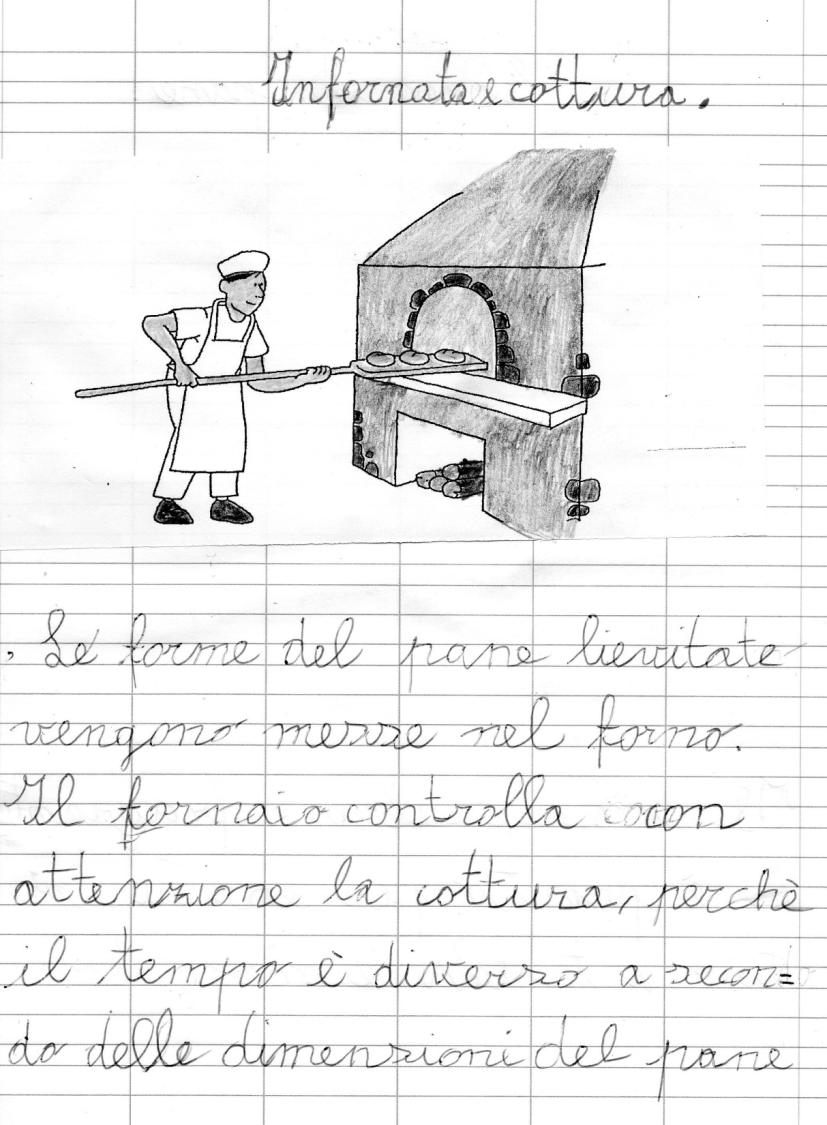 Infornata e cottura.
Le forme del pane lievitate
vengono messe nel forno.
Il fornaio controlla cocon
attenzione la cottura, perchè
il tempo è diverso a secon=
do delle dimensioni del pane